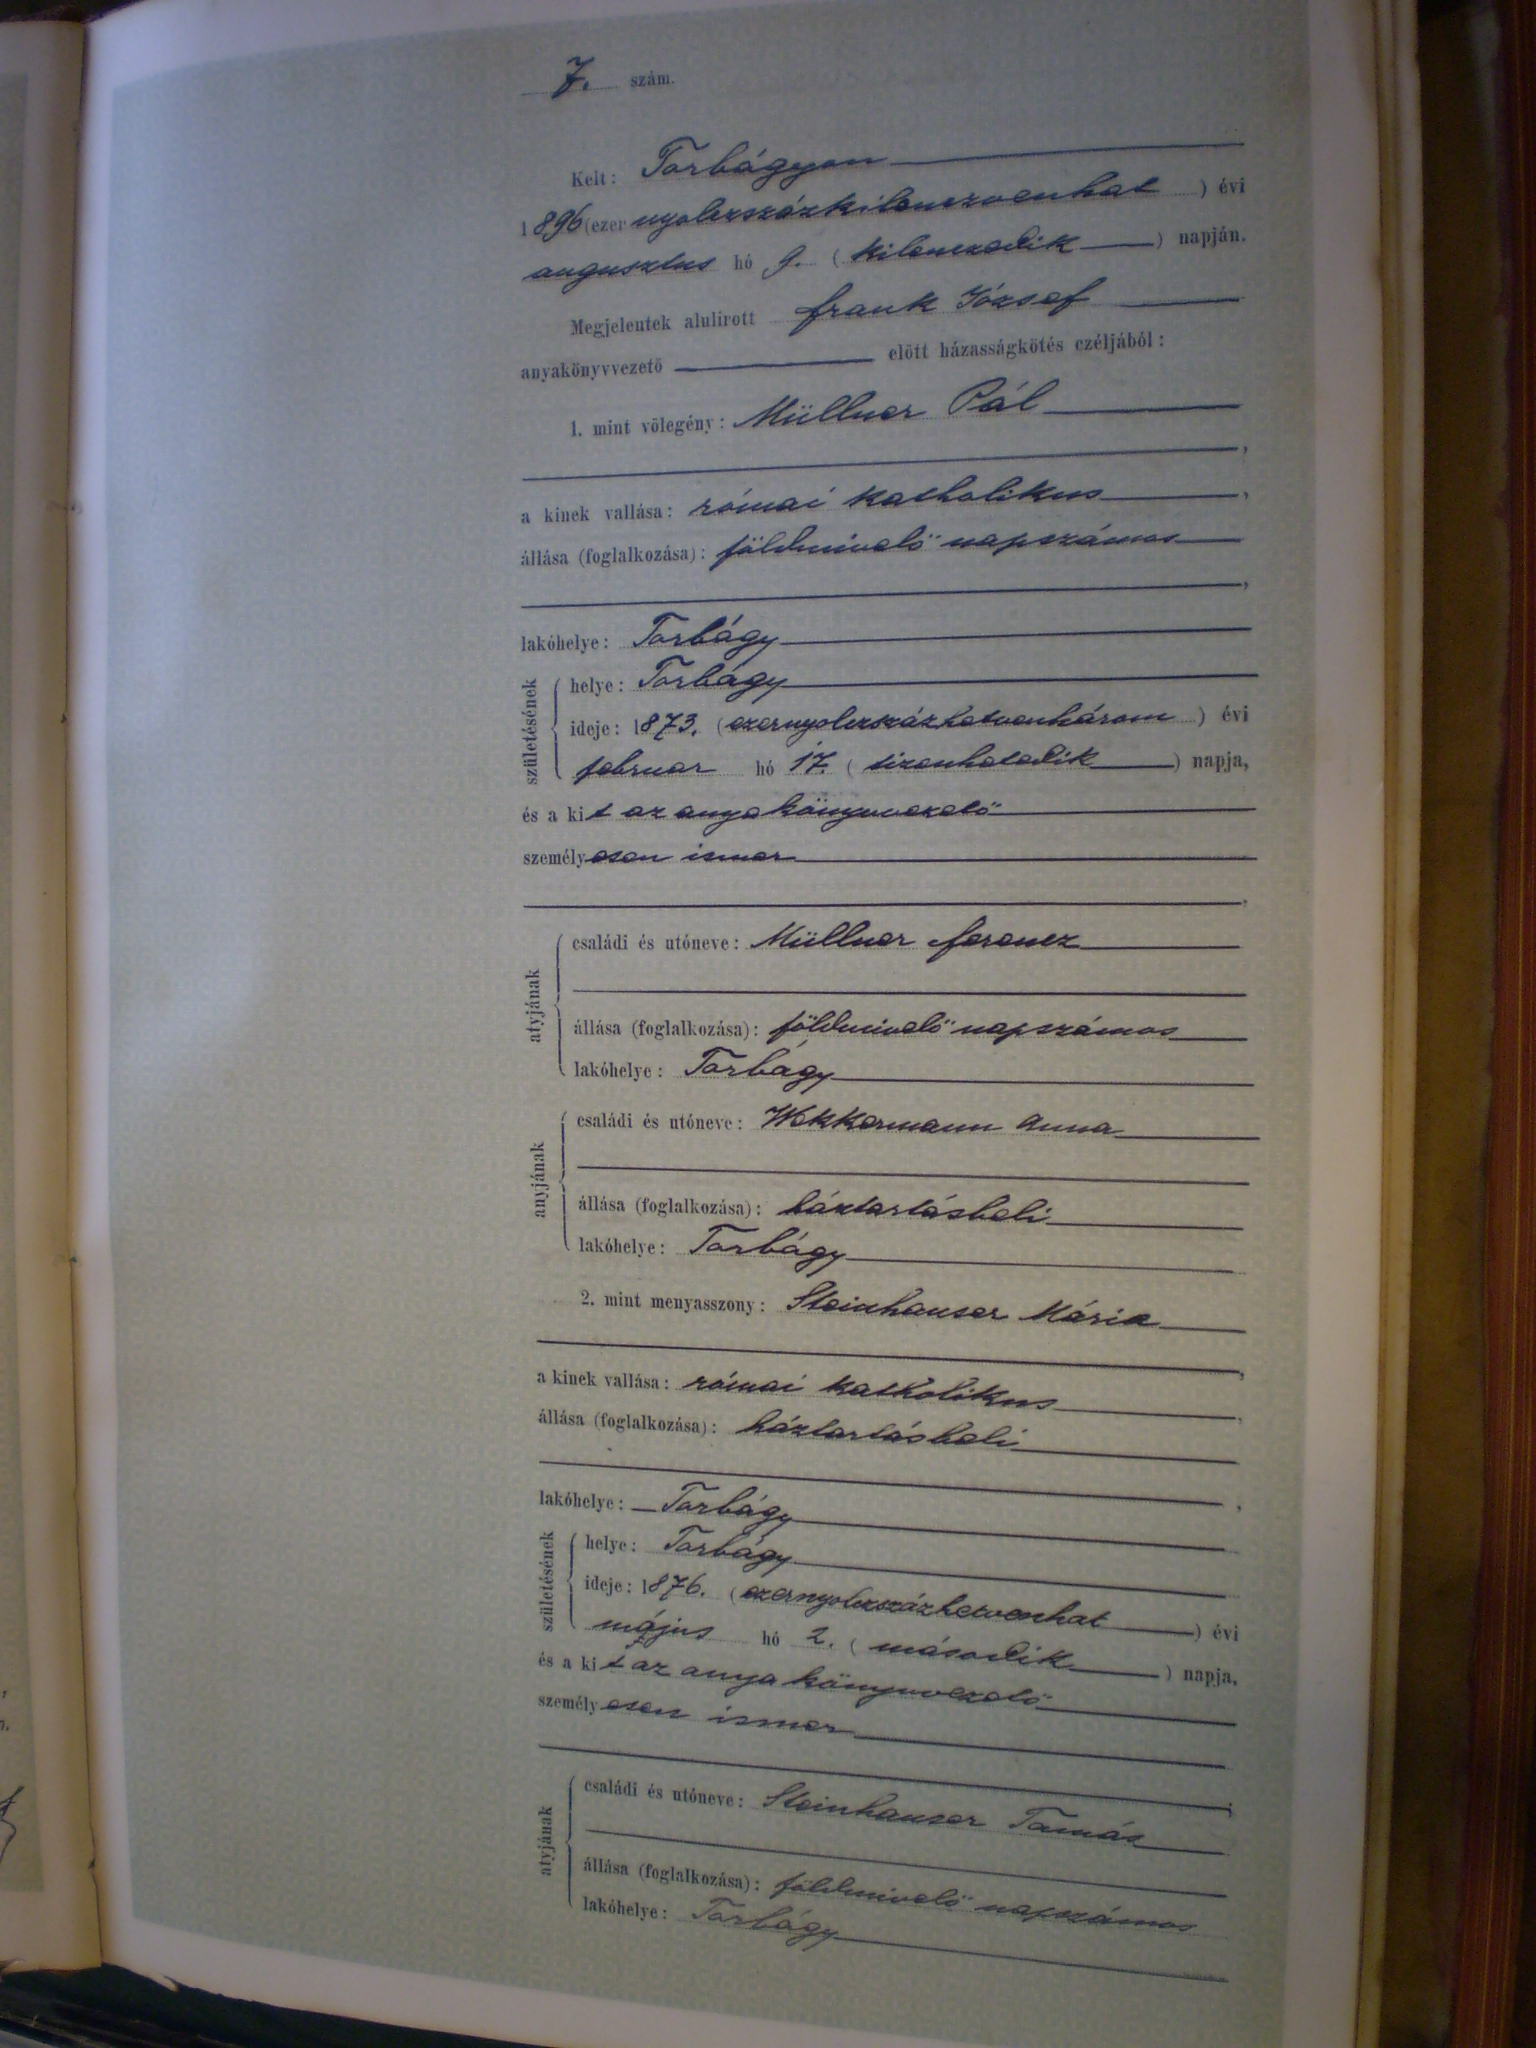 7. szám.
Kelt: Torbágyon
1896 (ezer nyolczszázkilenczvenhat) évi
augusztus hó 9. (kilenczedik) napján.
Megjelentek alulirott Frank József
anyakönyvvezető előtt házasságkötés czéljából:
1. mint vőlegény: Müllner Pál
,
a kinek vallása: római katholikus,
állása (foglalkozása): földmivelő napszámos
,
lakóhelye: Torbágy
születésének
helye: Torbágy
ideje: 1873. (ezernyolczszázhetvenhárom) évi
februar hó 17. (tizenhatedik) napja,
és a kit az anyakönyvvezető
személyesen ismer
,
atyjának
családi és utóneve: Müllner Ferencz
állása (foglalkozása): földmivelő napszámos
lakóhelye: Torbágy
anyjának
családi és utóneve: Wekkermann Anna
állása (foglalkozása): háztartásbeli
lakóhelye: Torbágy
2. mint menyasszony: Steinhauser Mária
,
a kinek vallása: római katholikus,
állása (foglalkozása): háztartásbeli
,
lakóhelye: Torbágy
születésének
helye: Torbágy
ideje: 1876. (ezernyolczszázhetvenhat) évi
május hó 2. (második) napja,
és a kit az anyakönyvvezető
személyesen ismer
;
atyjának
családi és utóneve: Steinhauser Tamás
állása (foglalkozása): földmivelő napszámos
lakóhelye: Torbágy